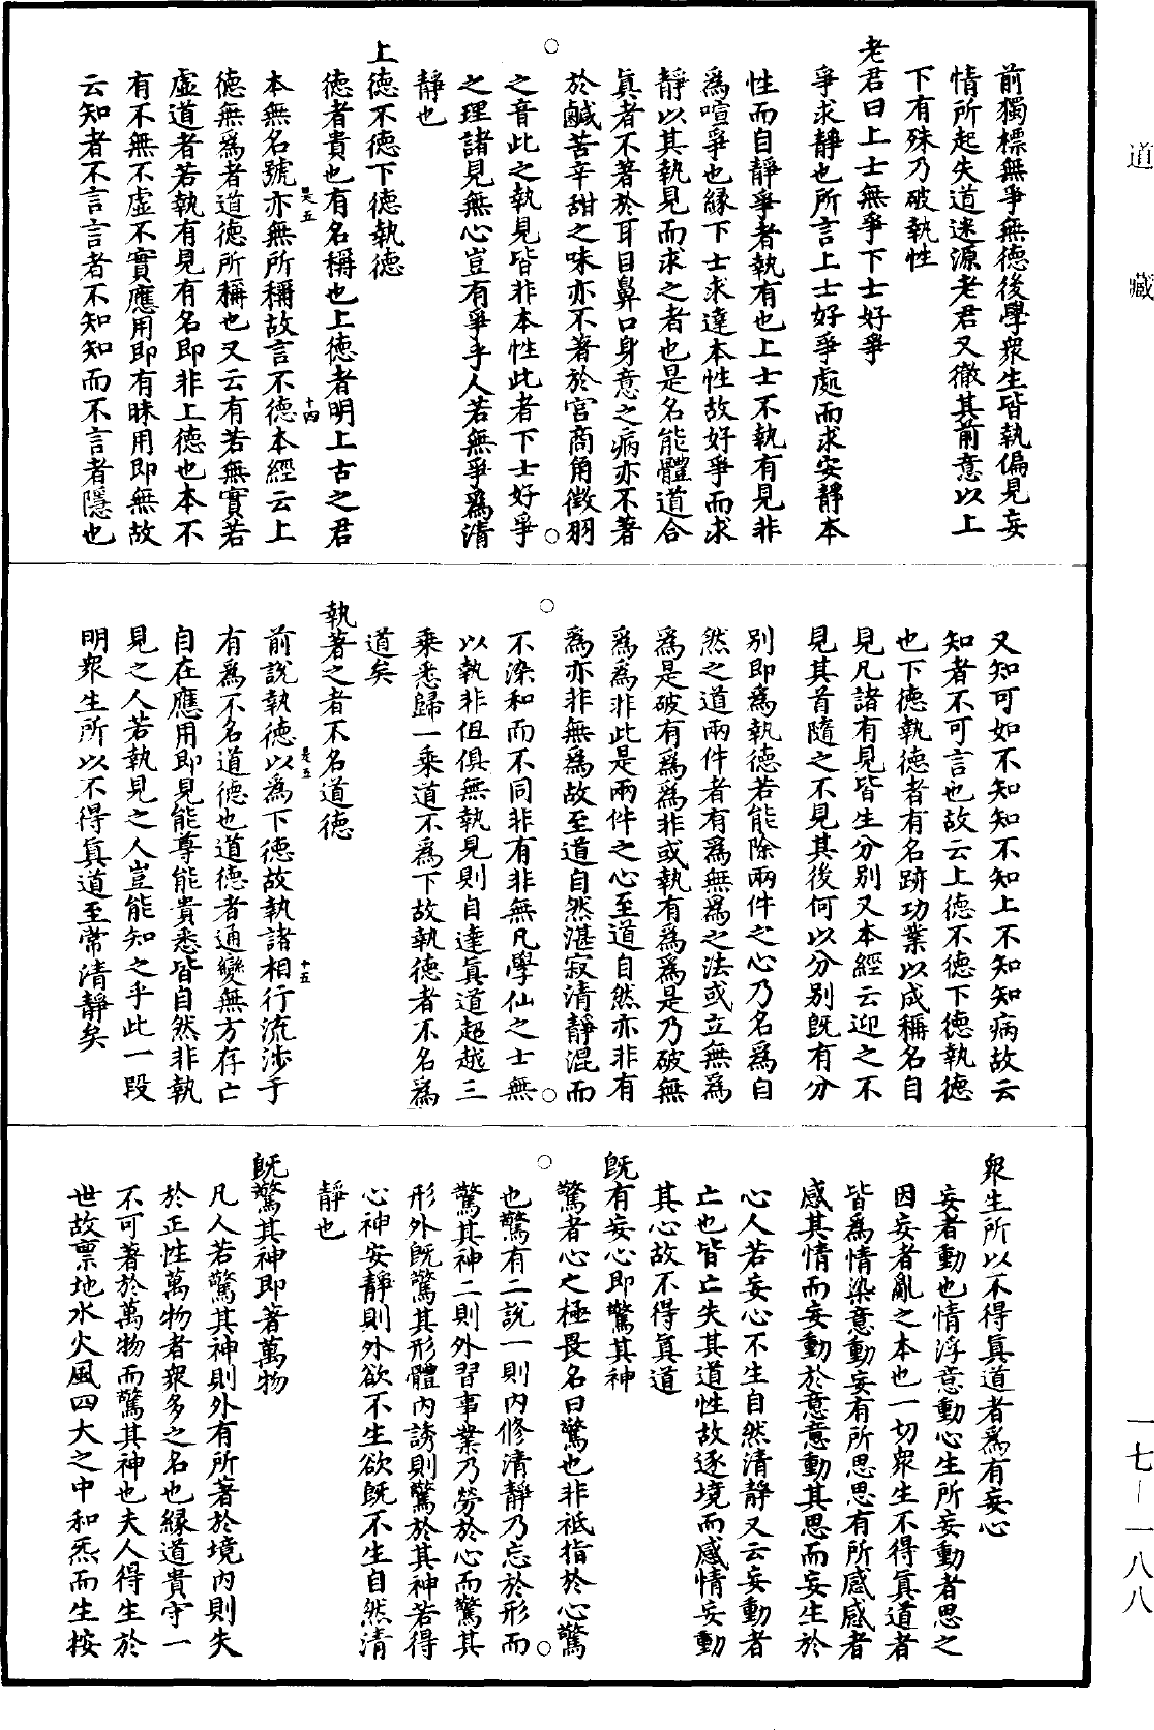 道藏
前獨標無爭無德後學衆生皆執偏見妄
情所起失道迷源老君又徹其前意以上
下有殊乃破執性
老君曰上士無爭下士好爭
爭求靜也所言上士好爭處而求安靜本
性而自靜爭者執有也上士不執有見非
爲喧爭也緣下士求達本性故好爭而求
靜以其執見而求之者也是名能體道合
眞者不著於耳目鼻口身意之病亦不著
於鹹苦辛甜之味亦不著於宮商角徵羽
之音此之執見皆非本性此者下士好爭
之理諸見無心豈有爭乎人若無爭爲清
靜也
上德不德下德執德
德者貴也有名稱也上德者明上古之君
本無名號亦無所稱故言不德本經云上
是五
十四
德無爲者道德所稱也又云有若無實若
虛道者若執有見有名即非上德也本不
有不無不虛不實應用即有昧用即無故
云知者不言言者不知知而不言者隱也
又知可如不知知不知上不知知病故云
知者不可言也故云上德不德下德執德
也下德執德者有名跡功業以成稱名自
見凡諸有見皆生分別又本經云迎之不
見其首隨之不見其後何以分別旣有分
別即爲執德若能除兩件之心乃名爲自
然之道兩件者有爲無爲之法或立無爲
爲是破有爲爲非或執有爲爲是乃破無
爲爲非此是兩件之心至道自然亦非有
爲亦非無爲故至道自然湛寂清靜混而
不染和而不同非有非無凡學仙之士無
以執非但俱無執見則自達眞道超越三
乘悉歸一乘道不爲下故執德者不名爲
道矣
執著之者不名道德
前說執德以爲下德故執諸相行流涉于
是五
十五
有爲不名道德也道德者通變無方存亡
自在應用即見能尊能貴悉皆自然非執
見之人若執見之人豈能知之乎此一段
明衆生所以不得眞道至常清靜矣
衆生所以不得眞道者爲有妄心
妄者動也情浮意動心生所妄動者思之
因妄者亂之本也一切衆生不得眞道者
皆爲情染意動妄有所思思有所感感者
感其情而妄動於意意動其思而妄生於
心人若妄心不生自然清靜又云妄動者
亡也皆亡失其道性故逐境而感情妄動
其心故不得眞道
旣有妄心即驚其神
驚者心之極畏名曰驚也非祗指於心驚
也驚有二說一則內修清靜乃忘於形而
驚其神二則外習事業乃勞於心而驚其
形外旣驚其形體內誘則驚於其神若得
心神安靜則外欲不生欲旣不生自然清
靜也
旣驚其神即著萬物
凡人若驚其神則外有所著於境內則失
於正性萬物者衆多之名也緣道貴守一
不可著於萬物而驚其神也夫人得生於
世故禀地水火風四大之中和炁而生按
一七-一八八